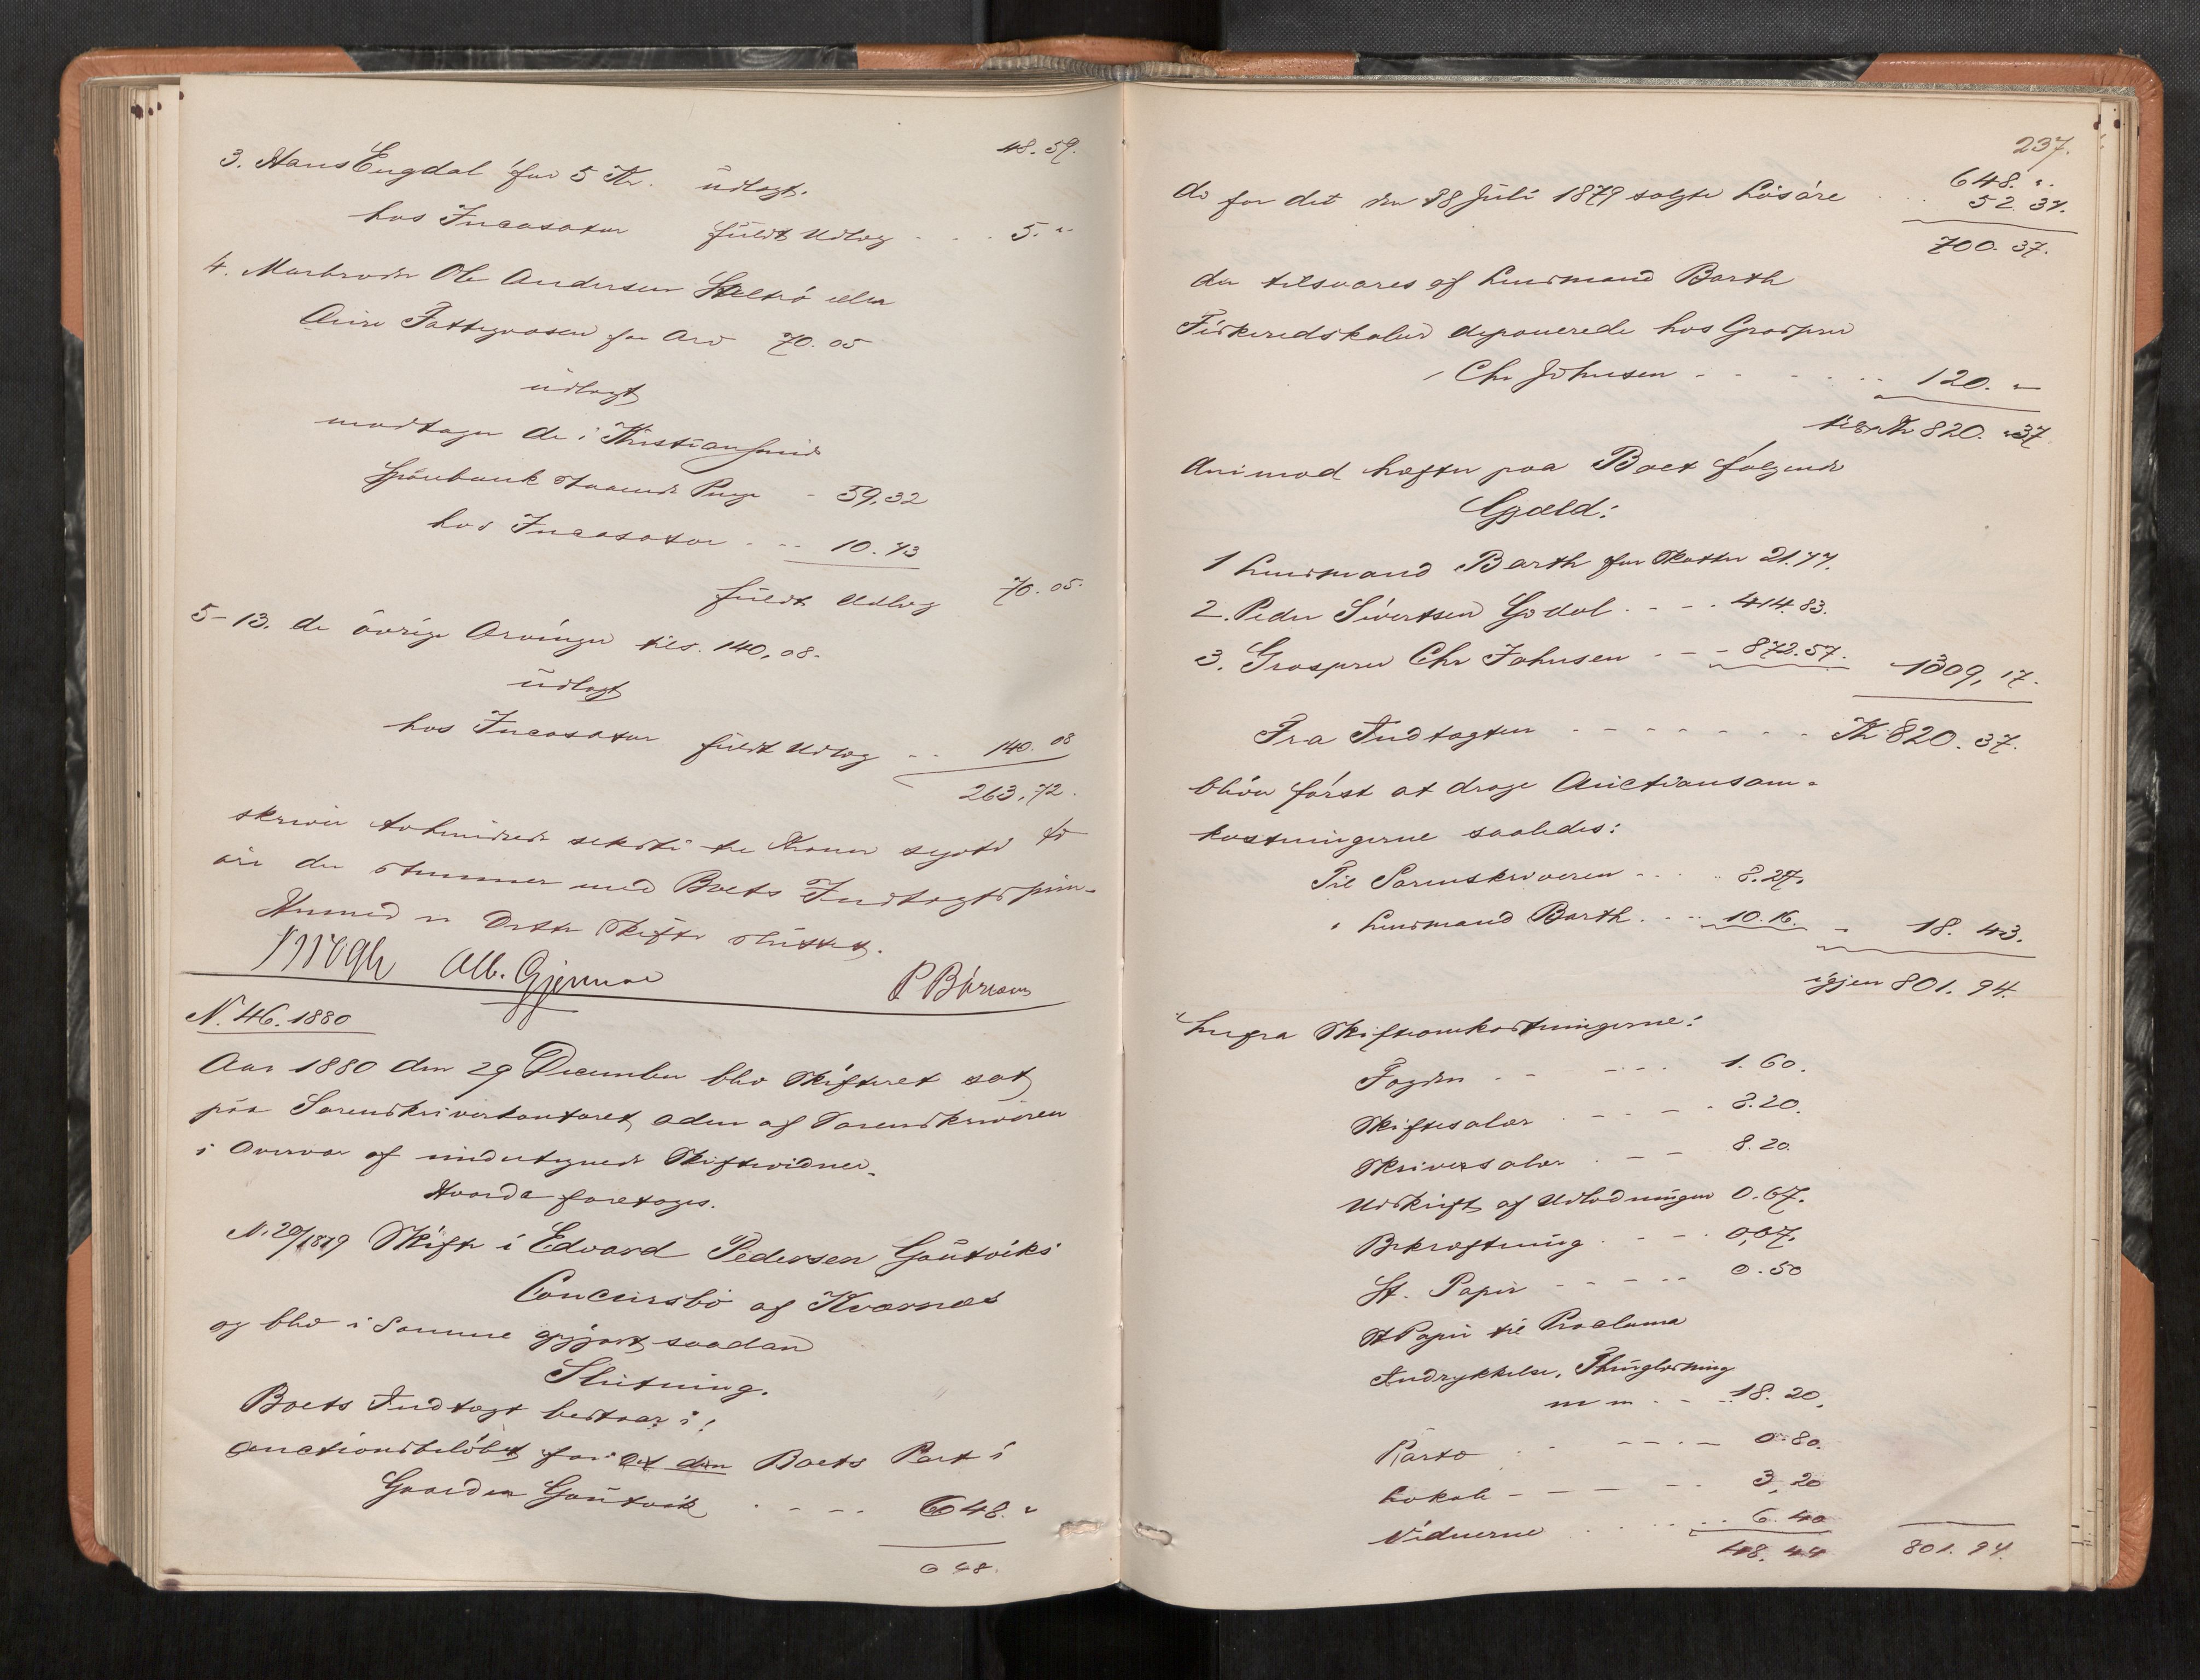 48.59.
3. Hans Engdal for 5 Kr. udlagt.
hos Incasator fuldt Udlæg 5. "
4. Morbroder Ole Andersen eller
Aure Fattigvæsen for Arv 70.05
udlagt
modtager de i Kristiansund
Sparebank staaende Penge 59,32
hos Incasator 10.73
fuldt Udlæg 70.05.
5-13. de øvrige Arvinger tils. 140,08.
udlagt
hos Incasator fuldt Udlæg 140.08
263,72.
skriver tohundrede seksti tre Kroner sytti to
øre der stemmer med Boets Indtægtssum.
Hermed er Dette Skifte sluttet.
Krogh Alb. Gjermoe P Börsom
N. 46. 1880
Aar 1880 den 29 December blev Skifteret sat
paa Sorenskriverkontoret aden af Sorenskriveren
i Overvær af undertegnede Skiftevidner.
Hvorda foretoges.
N. 20/1879 Skifte i Edvard Pedersen Gautviks
Concursbo af Kvernes
og blev i Samme gjjort saadan
Slutning.
Boets Indtægt bestaar i:
Auctionsbeløbet for det den Boets Part i
Gaarden Gautvik 648. "
648.
237.
648. "
do for det den 28 Juli 1879 solgte Løsøre 52.37.
700.37.
der tilsvares af Lensmand Barth
Fiskeredskaber deponerede hos Grosserer
Chr Johnsen 120. "
tils Kr 820.37
Herimod hæfter paa Boet følgende
Gjæld:
1 Lensmand Barth for Skatter 21.77.
2. Peder Sivertsen Godal 414.83.
3. Grosserer Chr Johnsen 872.57. 1309,17.
Fra Indtægten Kr 820.37.
bliver først at drage Auctionsom-
kostningerne saaledes:
Til Sorenskriveren 8.27.
" Lensmand Barth 10.16. 18.43.
igjen 801.94.
herfra Skifteomkostningerne:
Fogden 1.60.
Skiftesalær 8.20.
Skriversalær 8.20.
Udskrift af Udlodningen 0.67.
Bekræftning 0,67.
St. Papir 0.50
St Papir til Proclama
Indrykkelse, Thinglæsning
m m 18.20.
Porto 0.80.
Lokale 3,20
Vidnerne 6.40
48.44 801.94.